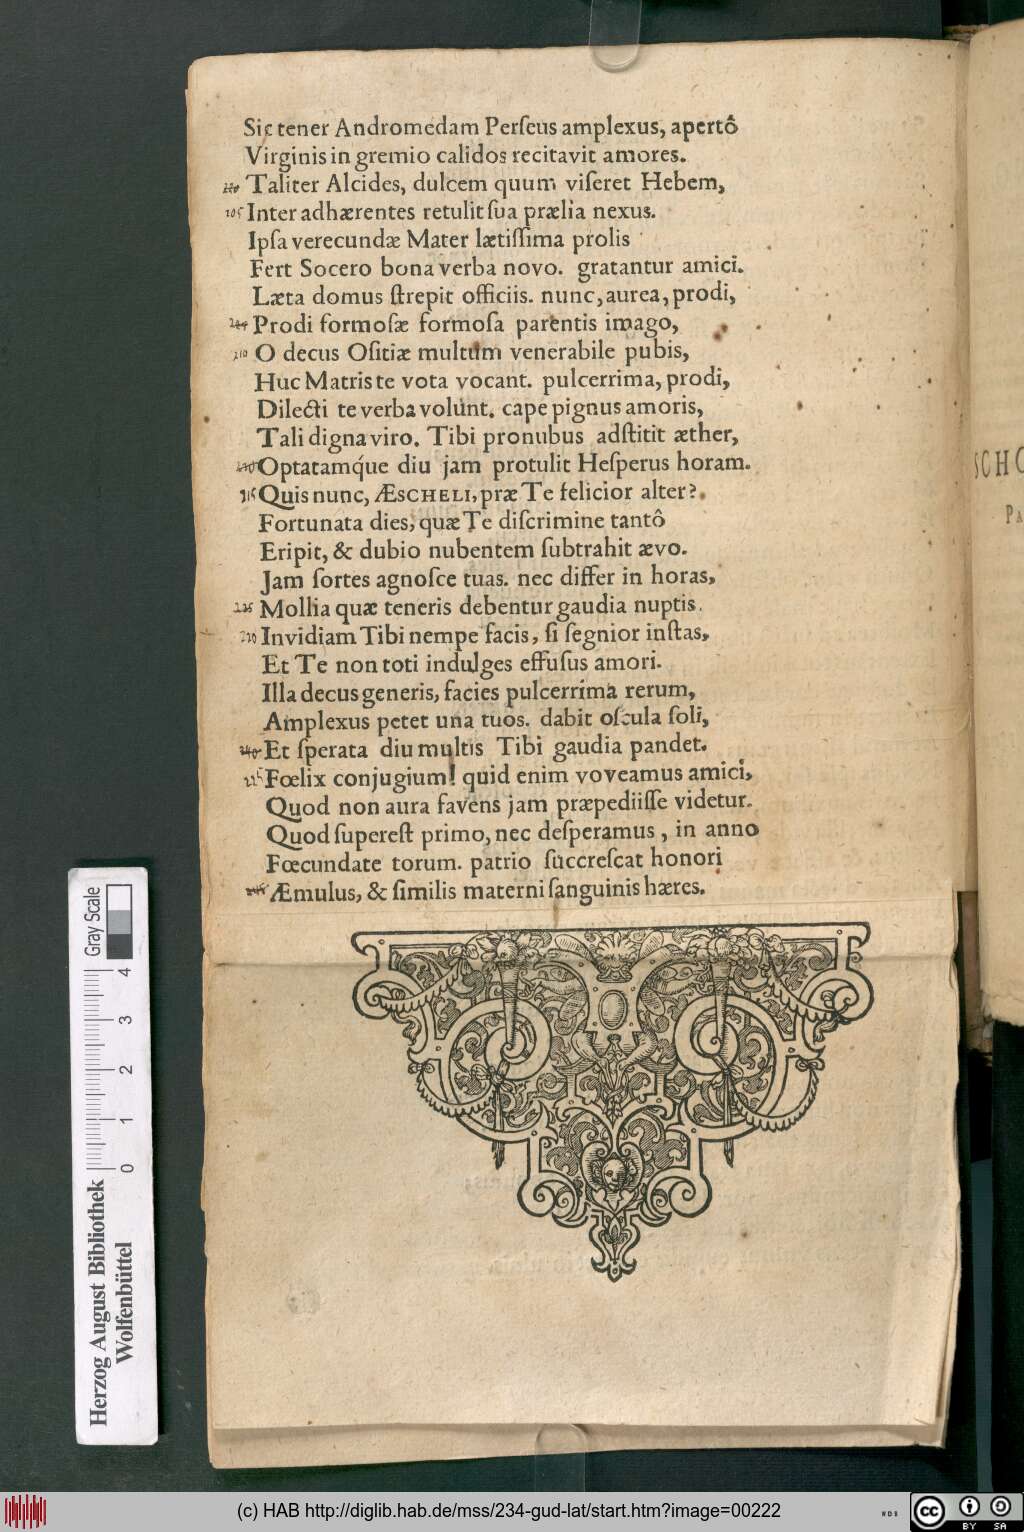 Sic tener Andromedam Perſeus amplexus, apertô
Virginis in gremio calidos recitavit amores.
Taliter Alcides, dulcem quum viſeret Hebem,
205 Inter adhærentes retulit ſua prælia nexus.
Ipſa verecundæ Mater lætiſſima prolis
Fert Socero bona verba novo. gratantur amici.
Læta domus ſtrepit officiis. nunc, aurea, prodi,
Prodi formoſæ formoſa parentis imago,
210 O decus Oſitiæ multum venerabile pubis,
Huc Matris te vota vocant. pulcerrima, prodi,
Dilecti te verba volunt. cape pignus amoris,
Tali digna viro. Tibi pronubus adſtitit æther,
Optatamq́ue diu jam protulit Heſperus horam.
315 Quis nunc, ÆSCHELI, præ Te felicior alter?
Fortunata dies, quæ Te diſcrimine tantô
Eripit, & dubio nubentem ſubtrahit ævo.
Jam ſortes agnoſce tuas. nec differ in horas,
Mollia quæ teneris debentur gaudia nuptis.
220 Invidiam Tibi nempe facis, ſi ſegnior inſtas,
Et Te non toti indulges effuſus amori.
Illa decus generis, facies pulcerrima rerum,
Amplexus petet una tuos. dabit oſcula ſoli,
Et ſperata diu multis Tibi gaudia pandet.
225 Fœlix conjugium! quid enim voveamus amici,
Quod non aura favens jam præpediiſſe videtur.
Quod ſupereſt primo, nec deſperamus, in anno
Fœcundate torum. patrio ſuccreſcat honori
Æmulus, & ſimilis materni ſanguinis hæres.
SCHO
PA
Gray Scale
4
3
2
1
0
Herzog August Bibliothek
Wolfenbüttel
(c) HAB http://diglib.hab.de/mss/234-gud-lat/start.htm?image=00222
WDB
cc
BY SA